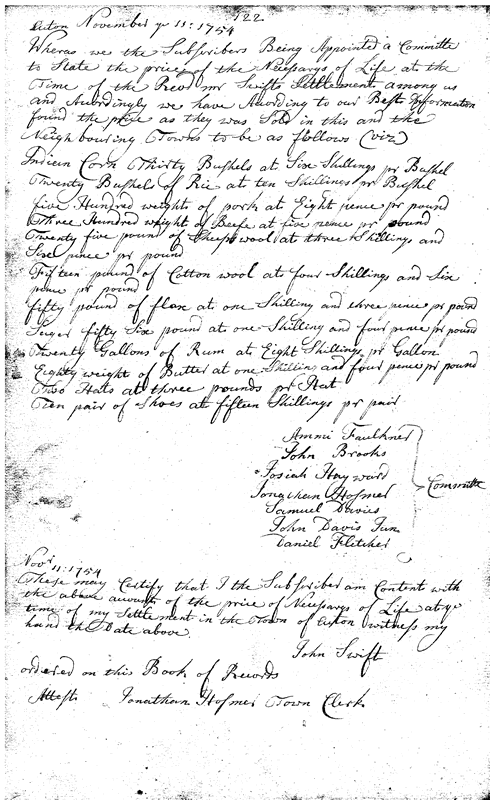 122
Acton November ye 11: 1754
Wheras we the Subscribers Being Appointed a Committe
to State the price of the Necessarys of Life at the
Time of the Revd mr Swifts Settlement among us
and Accordingly we have According to our Best Information
found the price as they was Sold in this and the
Neighbouring Towns to be as follows (viz)
Indien Corn Thirty Bushels at Six Shillings pr Bushel
Twenty Bushels of Rie at ten Shillings pr Bushel
five Hundred weight of pork at Eight pence pr pound
Three Hundred weight of Beefe at five pence pr pound
Twenty five pound of Sheeps wool at three Shillings and
Six pence pr pound
Fifteen pound of Cotton wool at four Shillings and Six
pence pr pound
fifty pound of flax at one Shilling and three pence pr pound
Suger fifty Six pound at one Shilling and four pence pr pound
Twenty Gallons of Rum at Eight Shillings pr Gallon
Eighty weight of Butter at one Shilling and four pence pr pound
Two Hats at three pounds pr Hat
Tien pair of Shoes at fifteen Shillings pr pair
Ammi Faulkner
John Brooks
Josiah Hayward
Jonathan Hosmer Committe
Samuel Davies
John Davis Jun
Daniel Fletcher
Novr 11: 1754
These may Certify that I the Subscriber am Content with
the above account of the price of Necessarys of Life at ye
time of my Settlement in the Town of Acton witness my
hand the Date above
John Swift
ordered on this Book of Records
Attest Jonathan Hosmer Town Clerk